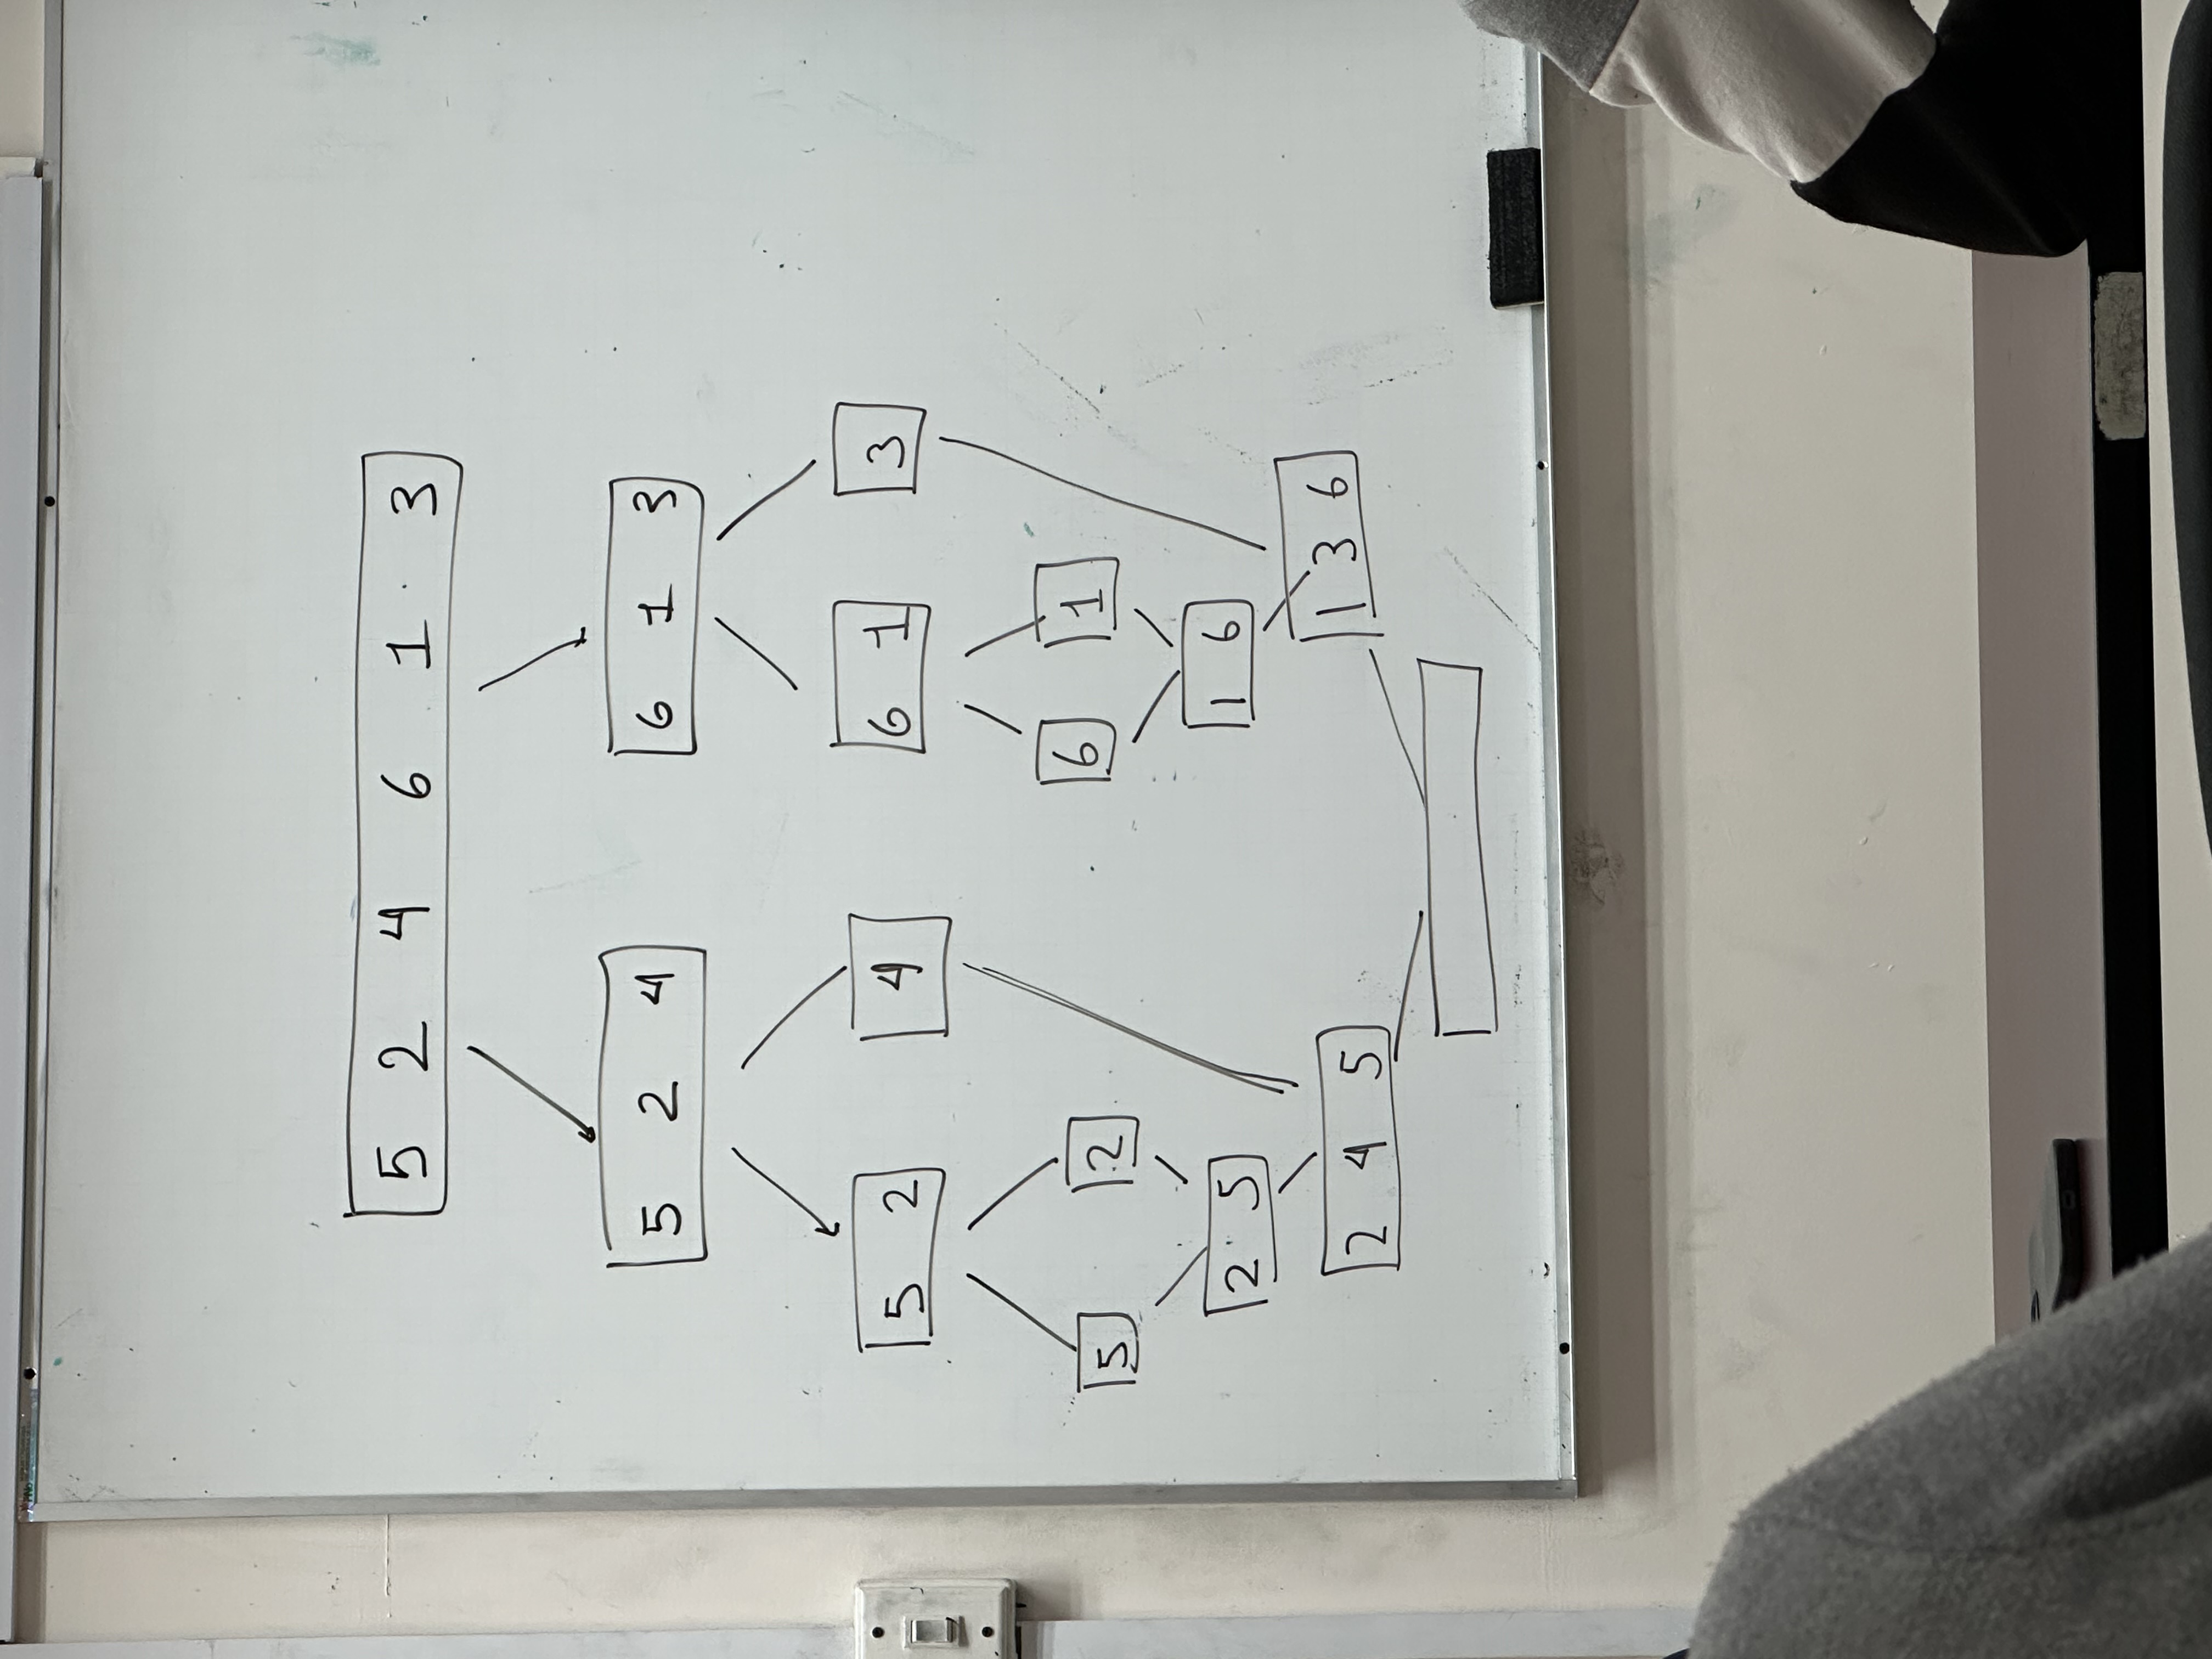 5 2 4 6 1 3
5 2 4 6 1 3
5 2 4 6 1 3
5 2 6 1
2 5 1 6
2 4 5 1 3 6